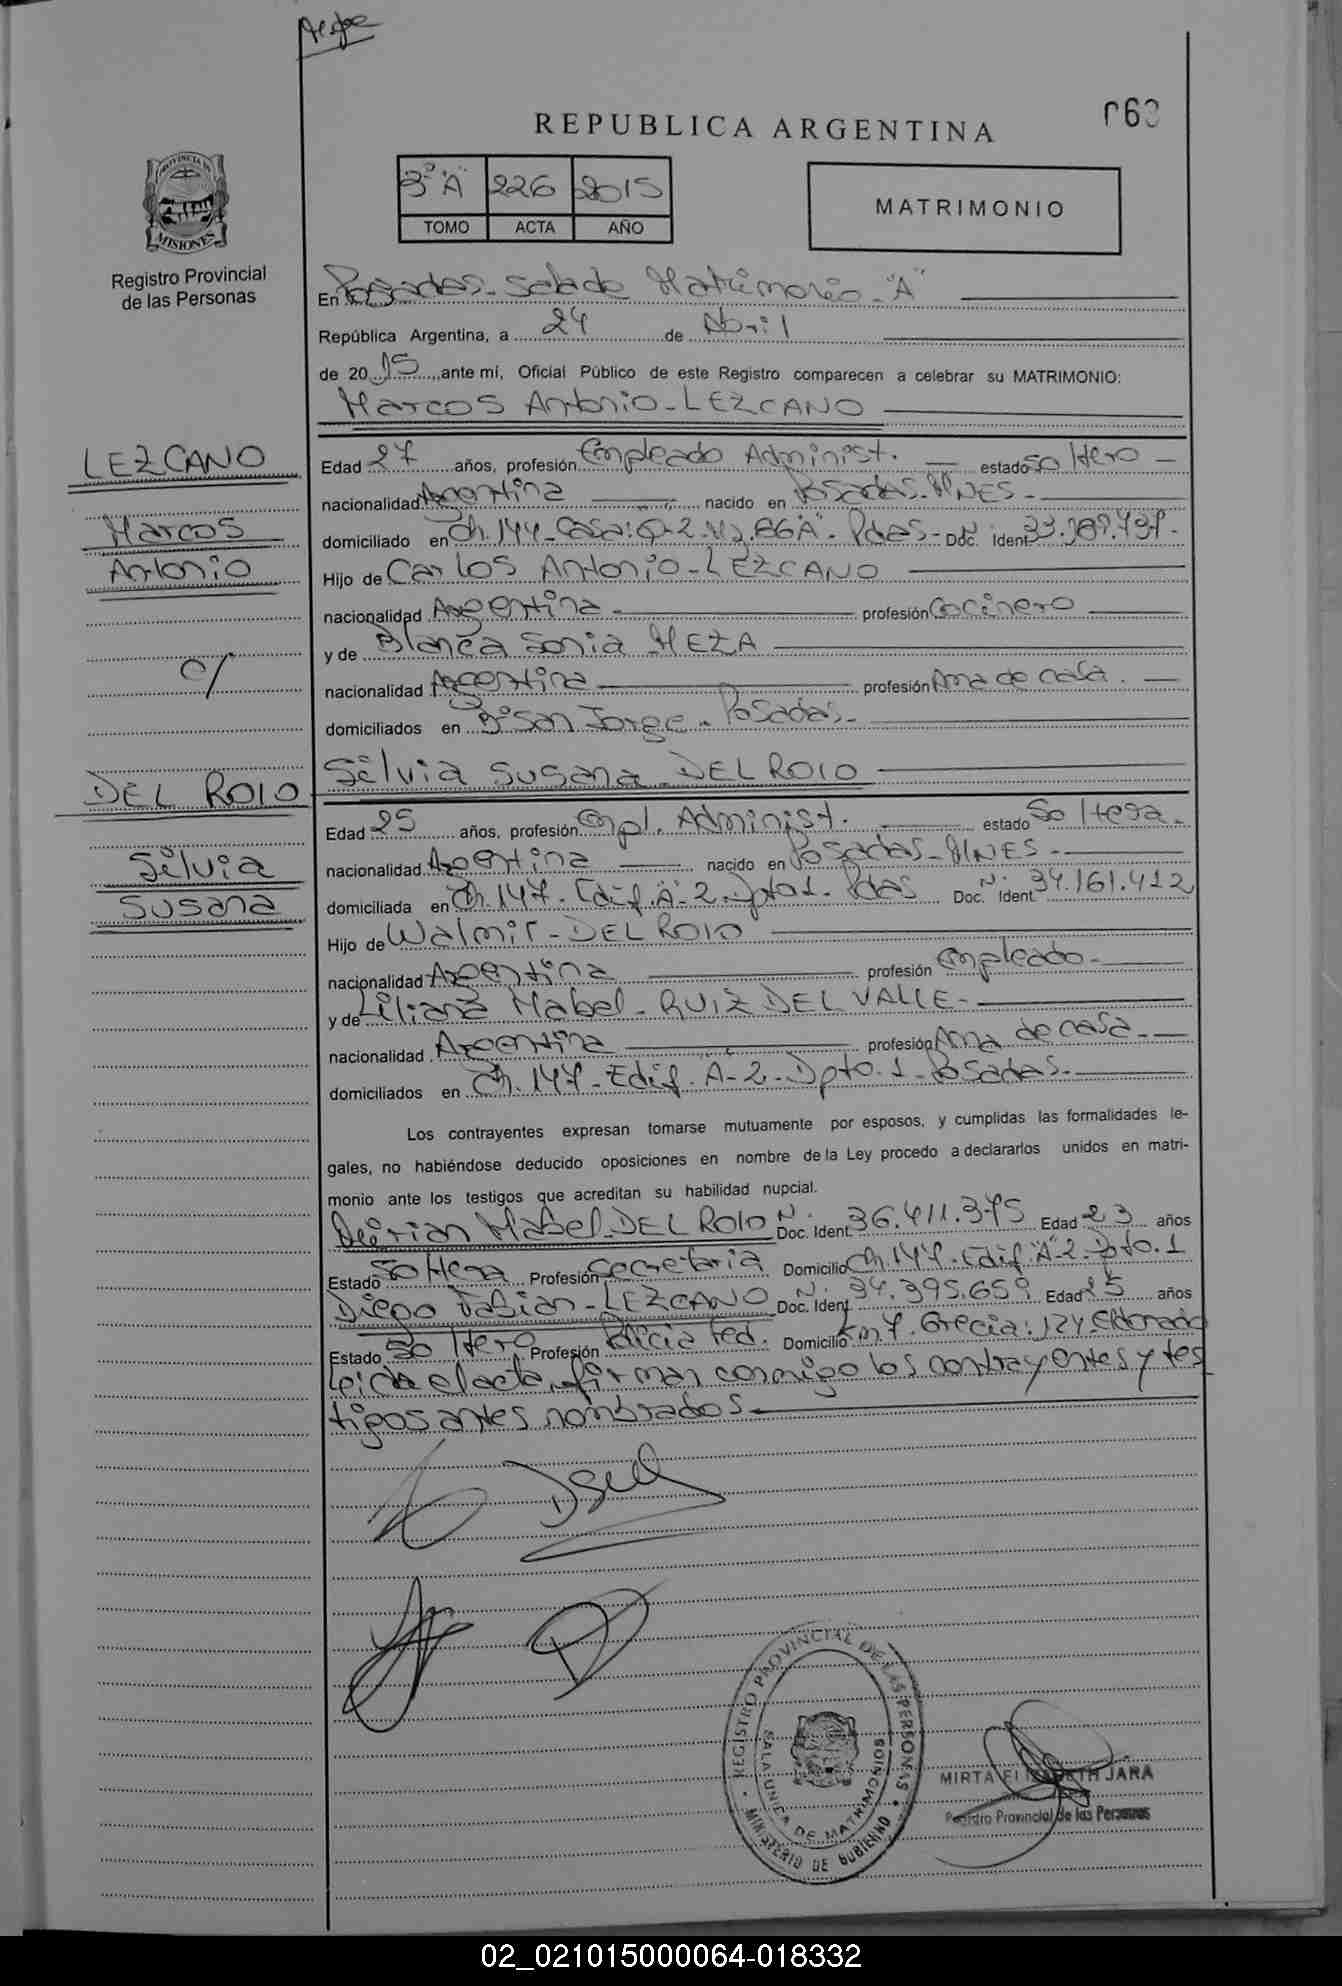 063
REPUBLICA ARGENTINA
3º "A" 226 2015
TOMO ACTA AÑO
MATRIMONIO
PROVINCIA DE
MISIONES
Registro Provincial
de las Personas
En Posadas - Salade Matrimonio - "A"
República Argentina, a 24 de Abril
de 2015, ante mí, Oficial Público de este Registro comparecen a celebrar su MATRIMONIO:
Marcos Antonio - LEZCANO
LEZCANO
Marcos
Antonio
c/
DEL ROIO
Silvia
Susana
Edad 27 años, profesión Empleado Administ. estado Soltero
nacionalidad Argentina nacido en Posadas - MNES -
domiciliado en Ch. 144 - Casa: Q-2 - Mz. 86 "A" - Pdas - Doc. Nº Ident 33.389.737 -
Hijo de Carlos Antonio - LEZCANO
nacionalidad Argentina profesión Cocinero
y de Blanca Sonia MEZA
nacionalidad Argentina profesión Ama de casa.
domiciliados en Bº San Jorge - Posadas -
Silvia Susana DEL ROIO
Edad 25 años, profesión Empl. Administ. estado Soltera -
nacionalidad Argentina nacido en Posadas - MNES -
domiciliada en Ch. 147 - Edif. A - 2 - Dpto 1 - Pdas Doc. Nº Ident 34.161.412
Hijo de Walmir - DEL ROIO
nacionalidad Argentina profesión Empleado -
y de Liliana Mabel - RUIZ DEL VALLE -
nacionalidad Argentina profesión Ama de casa -
domiciliados en Ch. 147 - Edif. A - 2 - Dpto. 1 - Posadas -
Los contrayentes expresan tomarse mutuamente por esposos, y cumplidas las formalidades le-
gales, no habiéndose deducido oposiciones en nombre de la Ley procedo a declararlos unidos en matri-
monio ante los testigos que acreditan su habilidad nupcial.
Mirian Mabel - DEL ROIO Doc. Nº Ident 36.411.375 Edad 23 años
Estado Soltera Profesión Secretaria Domicilio Ch. 147 - Edif "A" - 2 - Dpto. 1
Diego Fabian - LEZCANO Doc. Nº Ident 34.395.659 Edad 25 años
Estado Soltero Profesión Policia Fed. Domicilio Km 7. Grecia: 124 - Eldorado
Leida el acta, firman conmigo los contrayentes y tes
tigos antes nombrados
REGISTRO PROVINCIAL DE LAS PERSONAS
SALA UNICA DE MATRIMONIOS
MINISTERIO DE GOBIERNO
MIRTA ELIZABETH JARA
Registro Provincial de las Personas
02_021015000064-018332